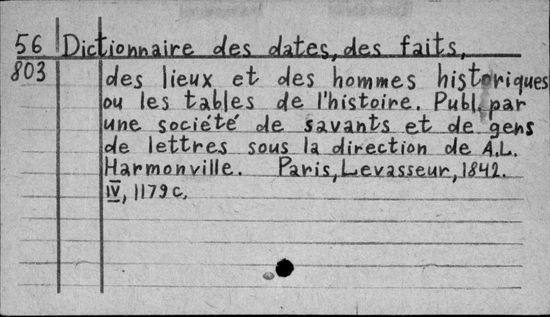 56 Dictionnaire des dates, des faits,
803 des lieux et des hommes historiques
ou les tables de l'histoire. Publ. par
une société de savants et de gens
de lettres sous la direction de A.L.
Harmonville. Paris, Levasseur, 1842.
IV, 1179 c.